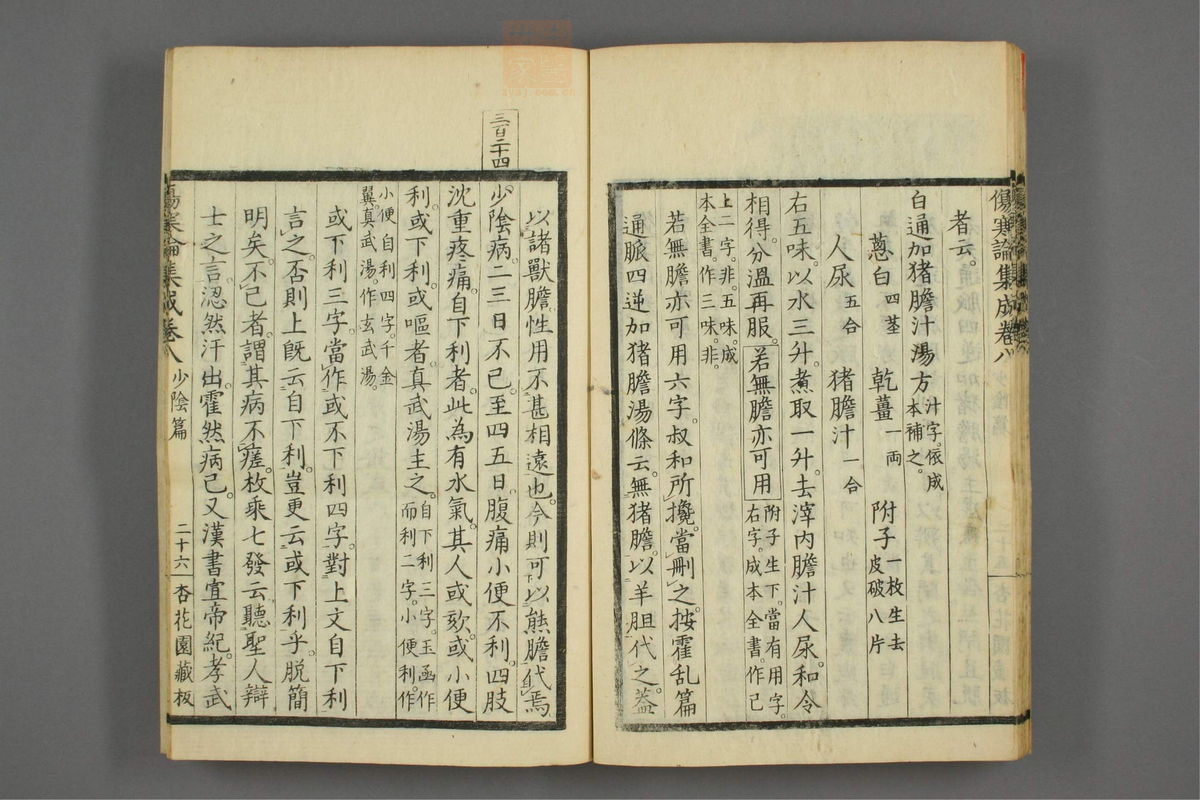 傷寒論集成卷八
者云。
白通加猪膽汁湯方 汁字。依成本補之。
葱白 四莖 乾薑 一両 附子 一枚生去皮破八片
人尿 五合 猪膽汁 一合
右五味。以水三升。煮取一升。去滓内膽汁人尿。和令
相得。分溫再服。若無膽亦可用 附子生下。當有用字。右字。成本全書。作已
上二字。非。五味。成本全書。作三味。非。
若無膽亦可用六字。叔和所攙。當刪之。按霍乱篇
通脈四逆加猪膽湯條云。無猪膽。以羊胆代之。蓋
三百二十四
以諸獸膽。性用不甚相遠也。今則可以熊膽代焉。
少陰病。二三日不已。至四五日。腹痛小便不利。四肢
沈重疼痛。自下利者。此為有水氣。其人或欬。或小便
利。或下利。或嘔者。真武湯主之。自下利三字。玉函作而利二字。小便利。作
小便自利四字。千金翼。真武湯。作玄武湯。
或下利三字。當作或不下利四字。對上文自下利
言之。否則上既云自下利。豈更云或下利乎。脱簡
明矣。不已者。謂其病不瘥。枚乘七發云。聽聖人辯
士之言。涊然汗出。霍然病已。又漢書宣帝紀。孝武
傷寒論集成卷八 少陰篇 二十六 杏花園藏板